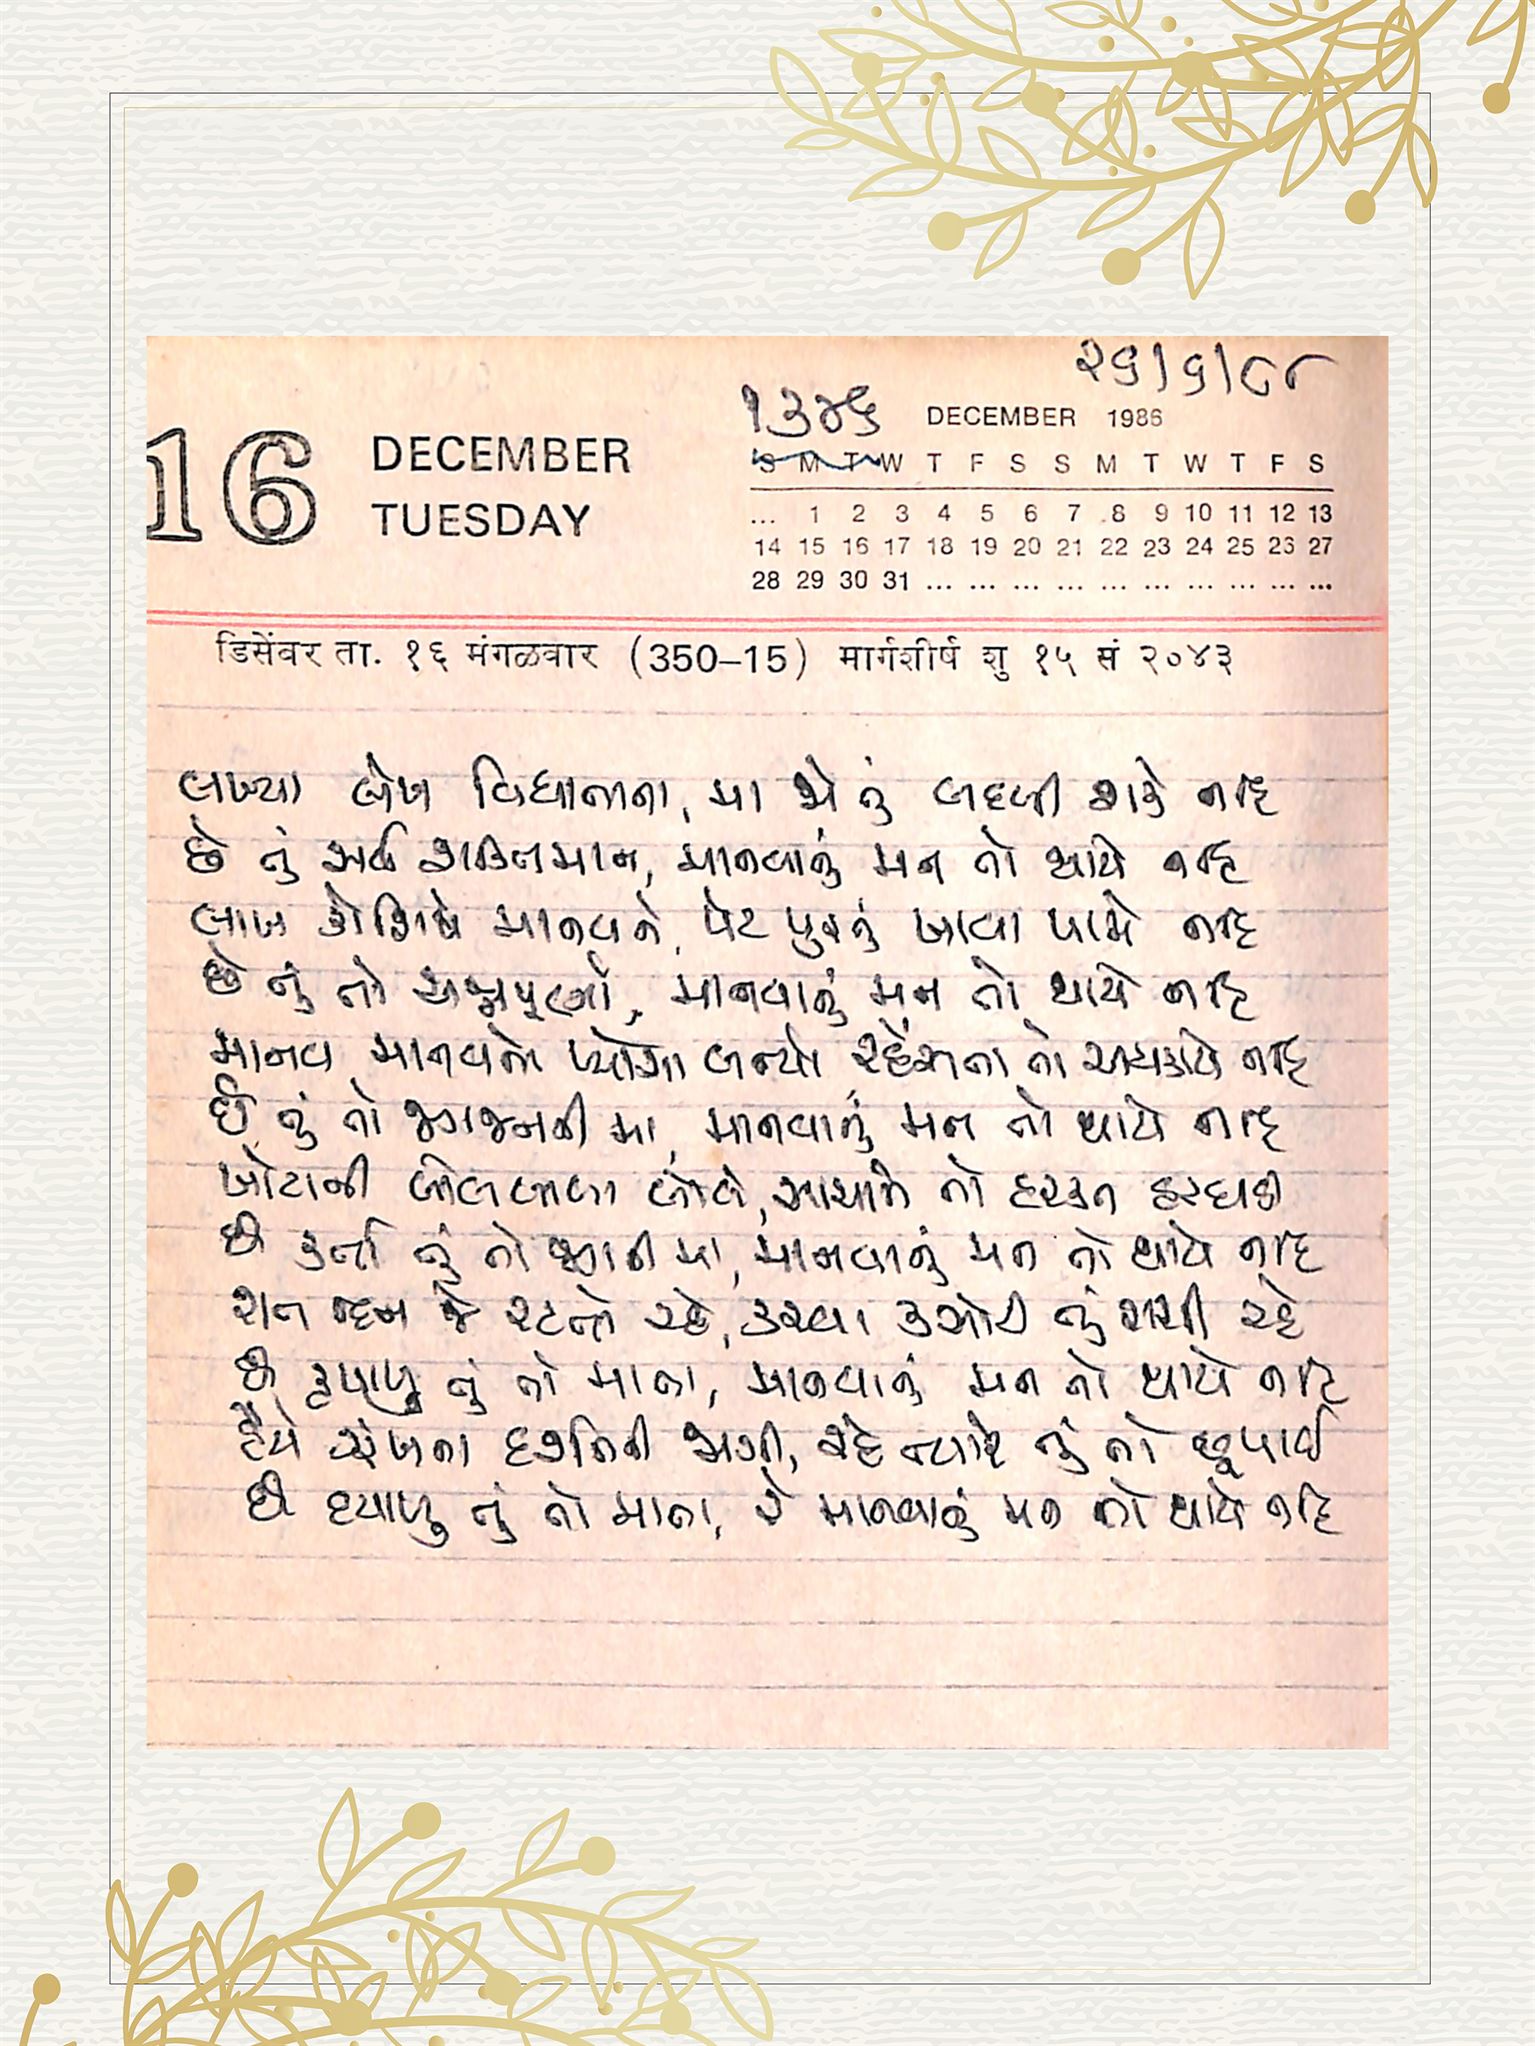 ૨૬/૬/૮૮
૧૩૪૬
DECEMBER 1986
16 DECEMBER
TUESDAY
S M T W T F S S M T W T F S
... 1 2 3 4 5 6 7 8 9 10 11 12 13
14 15 16 17 18 19 20 21 22 23 24 25 26 27
28 29 30 31 ... ... ... ... ... ... ... ... ... ...
डिसेंबर ता. १६ मंगळवार (350–15) मार्गशीर्ष शु १५ सं २०४३
લખ્યા લેખ વિધાતાના, મા જો તું બદલી શકે નહિ
છે તું સર્વ શક્તિમાન, માનવાનું મન તો થાયે નહિ
લાખ કોશિષે માનવને, પેટ પુરતું ખાવા પામે નહિ
છે તું તો અન્નપૂર્ણા, માનવાનું મન તો થાયે નહિ
માનવ માનવનો પ્યાસો બન્યો રહેંસતા તો અચકાયે નહિ
છે તું તો જગજનની મા, માનવાનું મન તો થાયે નહિ
ખોટાની બોલબાલા બોલે, સાચાને તો હરકત હરઘડી
છે કર્તા તું તો જગની મા, માનવાનું મન તો થાયે નહિ
રાત દિન જે રટતો રહે, કરવા કસોટી તું રાચી રહે
છે કૃપાળુ તું તો માતા, માનવાનું મન તો થાયે નહિ
હૈયે ઝંખના દર્શનની જાગી, રહે ત્યારે તું તો છૂપાઈ
છે દયાળુ તું તો માતા, રે માનવાનું મન તો થાયે નહિ